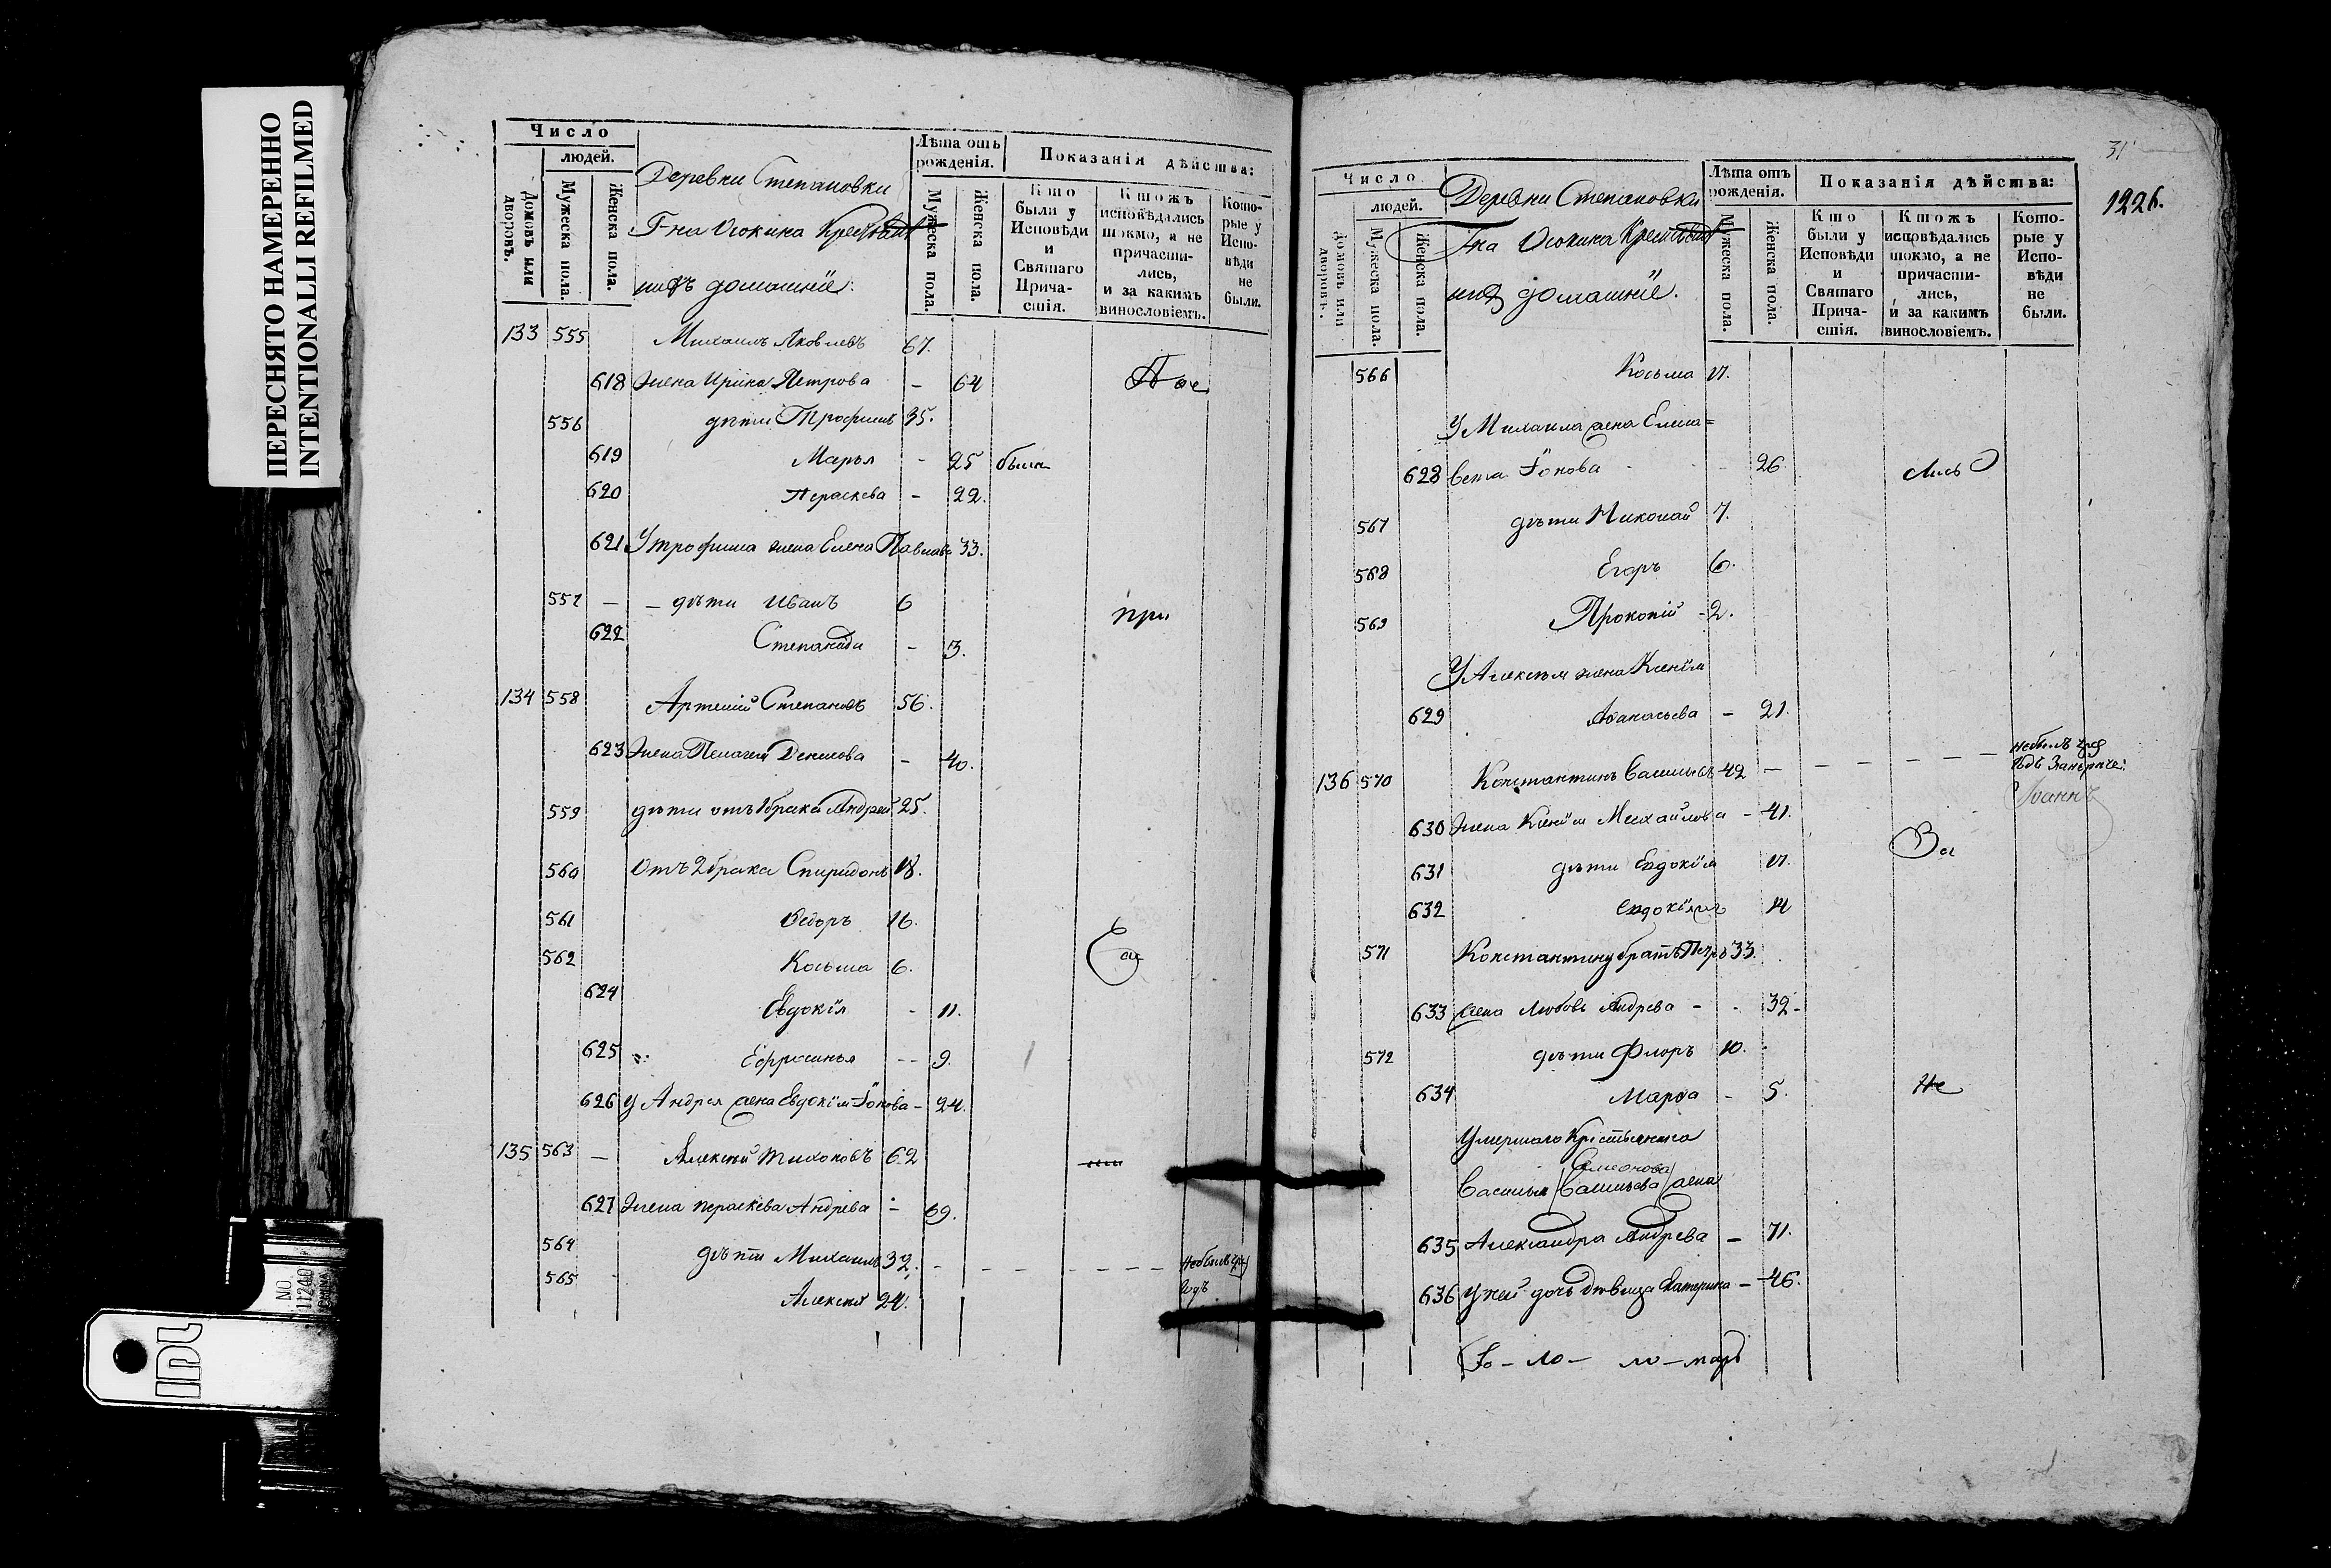 ПЕРЕСНЯТО НАМЕРЕННО
INTENTIONALLI REFILMED
Число
людей.
Домовъ или дворовъ.
Мужеска пола.
Женска пола.
Деревни Степановки
Г-на Осокина
домашніе:
Лѣта отъ рожденія.
Мужеска пола.
Женска пола.
Показанія дѣйства:
Кто были у Исповѣди и Святаго Причастія.
Ктожъ исповѣдались токмо, а не причастились, и за какимъ винословіемъ.
Которые у Исповѣди не были.
133 555 Михаилъ Яковлевъ 67.
618 Жена Ирина Петрова - 64
556 дѣти Трофимъ 35.
619 Марья - 25 были
620 Параскева - 22.
621 У Трофима жена Елена Павлова 33.
557 — — дѣти Иванъ 6 при
622 Степанида - 3.
134 558 Артемій Степановъ 56.
623 Жена Пелагея Денисова - 40.
559 дѣти отъ 1 брака Андрей 25.
560 Отъ 2 брака Спиридонъ 18.
561 Ѳедоръ 16.
562 Косьма 6.
624 Евдокія - 11.
625 Ефросинья -- 9.
626 У Андрея жена Евдокія Іонова - 24.
135 563 — Алексѣй Тихоновъ 62
627 Жена Параскева Андрѣева - 69.
564 дѣти Михаилъ 32. - - - - - - - небылъ
годъ
565 Алексѣй 24.
NO
11240
CHINA
IDL
31
1226.
Число
людей.
Домовъ или дворовъ.
Мужеска пола.
Женска пола.
Деревни Степановки
Г-на Осокина
домашніе.
Лѣта отъ рожденія.
Мужеска пола.
Женска пола.
Показанія дѣйства:
Кто были у Исповѣди и Святаго Причастія.
Ктожъ исповѣдались токмо, а не причастились, и за какимъ винословіемъ.
Которые у Исповѣди не были.
566 Косьма 17.
У Михаила жена Елиса=
628 вета Іонова - - 26. лись
567 дѣти Николай 7.
568 Егоръ 6.
569 Прокопій - 2.
У Алексѣя жена Ксенія
629 Аѳанасьева - 21.
136 570 Константинъ Васильевъ 42 — - - - - — небылъ
Іоаннъ
630 Жена Ксенія Михайлова - 41.
631 дѣти Евдокія 17. За
632 Евдокія 14
571 Константину братъ Петръ 33.
633 жена Любовь Андрева - - 32-
572 дѣти Флоръ 10. -
634 Марѳа - 5. Не
Умершаго Крестьянина
Симонова
Василья Васильева жена
635 Александра Андрева - 71.
636 У ней дочь дѣвица Катерина - 46.